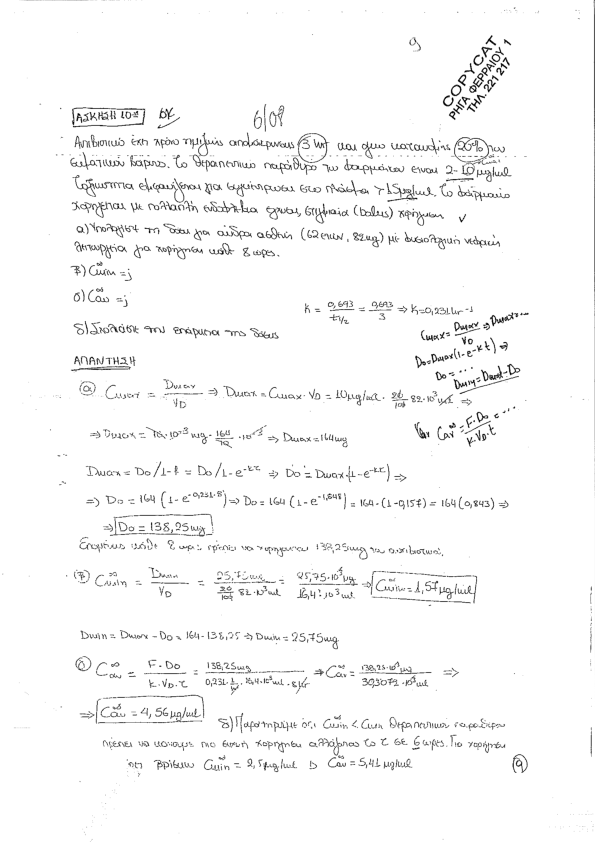 9
COPYCAT
ΡΗΓΑ ΦΕΡΡΑΙΟΥ 1
ΤΗΛ. 221 217
ΑΣΚΗΣΗ 10η
6/08
Αντιβιοτικό έχει χρόνο ημιζωής 3 hr και όγκο κατανομής 20% του
σωματικού βάρους. Το θεραπευτικό παράθυρο του φαρμάκου είναι 2-10 μg/ml
Τοξικότητα εμφανίζεται για συγκέντρωση στο πλάσμα > 15μg/ml. Το φάρμακο
χορηγείται με πολλαπλή ενδοφλέβια έγχυση, στιγμιαία (bolus) χορήγηση
α) Υπολογίστε τη δόση για άνδρα ασθενή (62 ετών, 82kg) με φυσιολογική νεφρική
λειτουργία για χορήγηση κάθε 8 ώρες.
β) C∞min = ;
γ) C∞av = ;
K = 0,693/t1/2 = 0,693/3 ⇒ K = 0,231 hr-1
δ) Σχολιάστε την επάρκεια της δόσης
Cmax = Dmax/VD ⇒ Dmax = ...
Do = Dmax(1-e-kt) ⇒
Do = ...
Dmin = Dmax - Do
C∞av = F·Do/K·VD·τ = ...
ΑΠΑΝΤΗΣΗ
α) Cmax = Dmax/VD ⇒ Dmax = Cmax·VD = 10μg/ml · 20/100 · 82·10³ ml ⇒
⇒ Dmax = 164mg
Dmax = Do/1-f = Do/1-e-kτ ⇒ Do = Dmax(1-e-kτ) ⇒
⇒ Do = 164(1-e-0,231·8) ⇒ Do = 164(1-e-1,848) = 164·(1-0,157) = 164(0,843) ⇒
⇒ Do = 138,25mg
Επομένως κάθε 8 ώρες πρέπει να χορηγείται 138,25mg του αντιβιοτικού.
β) C∞min = Dmin/VD = 25,75mg/20/100 82·10³ml = 25,75·10³μg/16,4·10³ml ⇒ C∞min = 1,57μg/ml
Dmin = Dmax - Do = 164-138,25 ⇒ Dmin = 25,75mg
γ) C∞av = F·Do/K·VD·τ = 138,25mg/0,231·1/hr·16,4·10³ml·8hr ⇒ C∞av = 138,25·10³μg/30,3072·10³ml ⇒
⇒ C∞av = 4,56μg/ml
δ) Παρατηρούμε ότι C∞min < Cmin θεραπευτικού παραθύρου
πρέπει να κάνουμε πιο συχνή χορήγηση αλλάζοντας το τ σε 6 ώρες. Για χορήγηση
6τ βρίσκω C∞min = 2,5μg/ml C∞av = 5,41 μg/ml
9